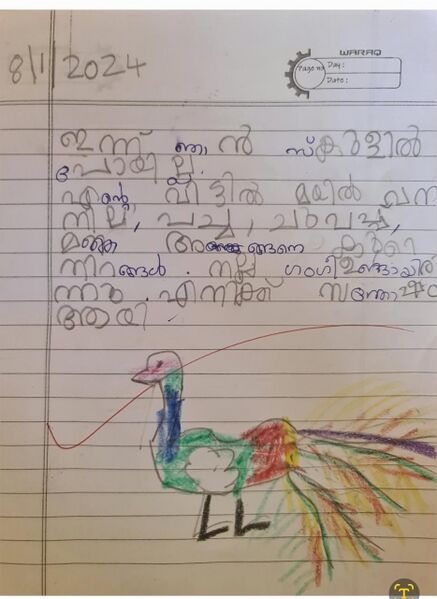 WARAQ
Page no
Day:
Date:
8/1/2024
ഇന്ന് ഞാൻ സ്കൂളിൽ
പോയില്ല.
എന്റെ വീട്ടിൽ മയിൽ വന്ന
നീല, പച്ച,
മഞ്ഞ അങ്ങനെ കുറെ
നിറങ്ങൾ. നല്ല ഗംഗിഉണ്ടായിരു
ന്നു. എനിക്ക് സന്തോഷമാ
തായി